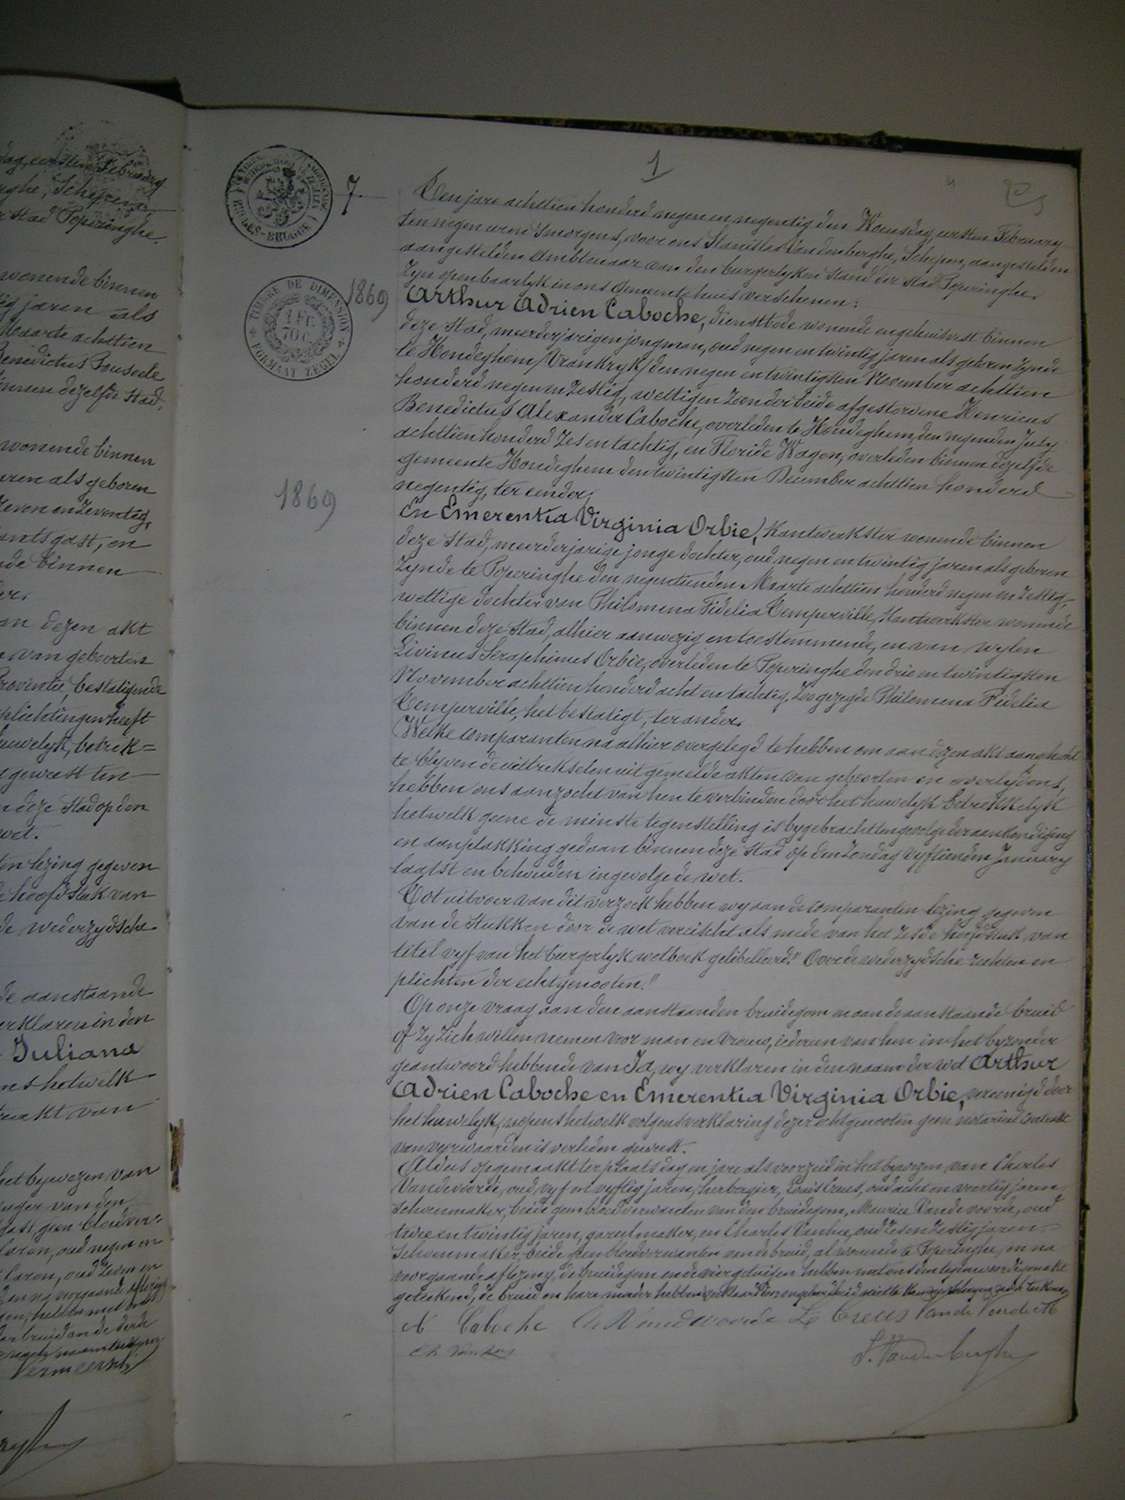 1
7
1869
1869
TIMBRE DE DIMENSION
FORMAAT ZEGEL
Ten jare achttien honderd negen en negentig den Woensdag, eersten February
ten negen uren smorgens, voor ons Stanislas Vandenberghe, Schepen, aangestelden
aangestelden Ambtenaar van den burgerlyken stand der stad Poperinghe,
zyn openbaarlyk in ons Gemeentehuis verschenen:
Arthur Adrien Caboche, dienstbode wonende en gehuisvest binnen
deze Stad, meerderjarigen jongman, oud negen en twintig jaren als geboren zynde
te Hondeghem (Vrankryk) den negen en twintigsten November achttien
honderd negen en zestig, wettigen zoon der beide afgestorvene Henricus
Benedictus Alexander Caboche, overleden te Hondeghem, den negenden July
achttien honderd zes en tachtig, en Floride Wagon, overleden binnen dezelfde
gemeente Hondeghem den twintigsten December achttien honderd
negentig, ter eender,
En Emerentia Virginia Orbie, Kantwerkster wonende binnen
deze Stad, meerderjarige jonge dochter, oud negen en twintig jaren als geboren
zynde te Poperinghe den negentienden Maarte achttien honderd negen en zestig,
wettige dochter van Philomena Fidelia Temperville, Kantwerkster wonende
binnen deze Stad, alhier aanwezig en toestemmende, en van wylen
Livinus Seraphinus Orbie, overleden te Poperinghe den drie en twintigsten
November achttien honderd acht en tachtig, zoo gezegde Philomena Fidelia
Temperville, het bestatigt, ter ander,
Welke Comparanten na alhier overgelegd te hebben om aan dezen akt aangehecht
te blyven de uittrekselen uit gemelde akten van geboorten en overlydens,
hebben ons aanzocht van hen te verbinden door het huwelyk betrekkelyk
hetwelk geene de minste tegenstelling is bygebracht tengevolge der aankondiging
en aanplakking gedaan binnen deze Stad op den Zondag vyftienden January
laatst en behouden ingevolge de wet.
Tot uitvoer van dit verzoek hebben wy aan de Comparanten lezing gegeven
van de stukken door de wet vereischt als mede van het zesde hoofdstuk van
titel vyf van het burgerlyk wetboek gelibelleerd: "Over de wederzydsche rechten en
plichten der echtgenooten."
Op onze vraag aan den aanstaanden bruidegom en aan de aanstaande bruid
of zy zich willen nemen voor man en vrouw, iedereen van hen in het byzonder
geantwoord hebbende van Ja, wy verklaren in den naam der wet Arthur
Adrien Caboche en Emerentia Virginia Orbie, vereenigd door
het huwelyk, nopens hetwelk volgens verklaring dezer echtgenooten geen notarieel contrakt
van vyrwaarden is verleden geweest.
Aldus opgemaakt ter plaats dag en jare als voorzeid in het bywezen van Charles
Vandevoorde, oud vyf en vyftig jaren, herbergier, Louis Creus, oud acht en veertig jaren,
schoenmaker, beide geen bloedverwanten van den bruidegom, Maurice Vandevoorde, oud
twee en twintig jaren, gareelmaker, en Charles oud zes en zestig jaren
schoenmaker, beide geen bloedverwanten van de bruid, al wonende te Poperinghe, en na
voorgaande aflezing, de bruidegom en de vier getuigen hebben met ons den tegenwoordigen akt
geteekend, de bruid en hare moeder hebben verklaard
A Caboche Ch Vandevoorde
S. Vandenberghe
dag, eersten February
nghe, Schepen
r stad Poperinghe.
wonende binnen
tig jaren als
Maarte achttien
Benedictus
innen dezelfde Stad,
wonende binnen
aren als geboren
zeven en zeventig,
gast, en
nde binnen
an dezen akt
van geboorten
Provintie bestatigende
plichtingen heeft
huwelyk, betrek=
geweest ten
n deze Stad op den
wet.
en lezing gegeven
hoofdstuk van
de wederzydsche
de aanstaande
erklaren in den
Juliana
hetwelk
trakt van
het bywezen van
van den
geen bloedver=
jaren, oud negen en
jaren, oud zeven en